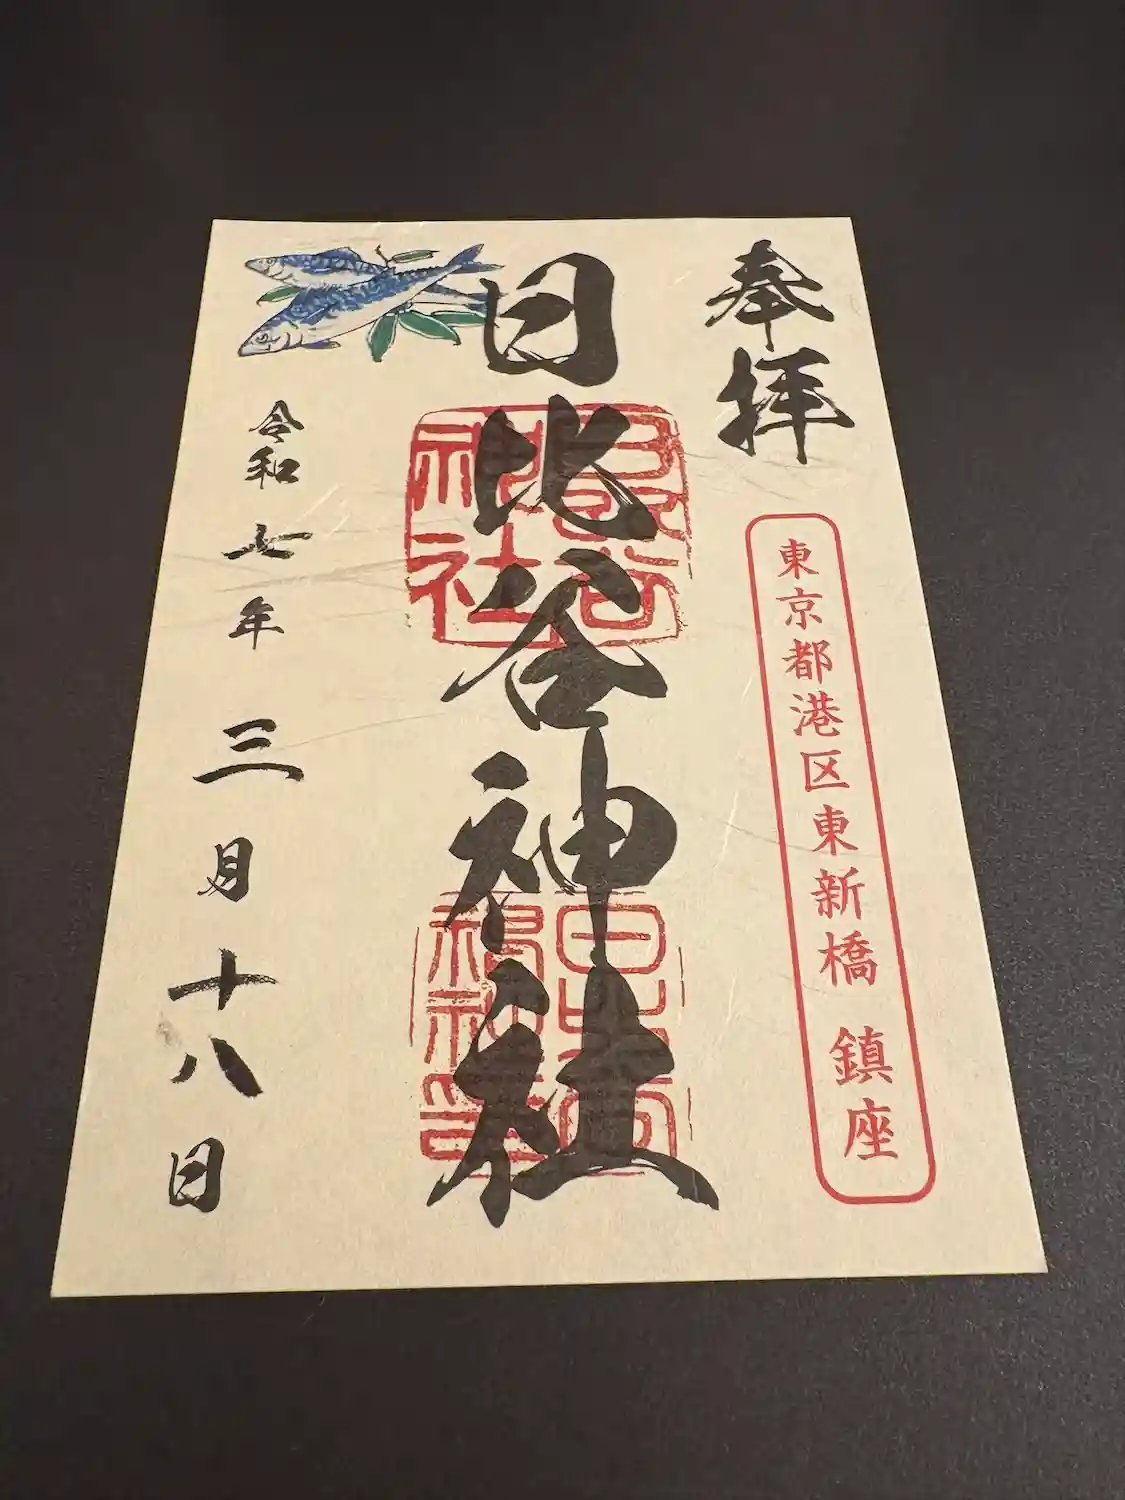 奉拝
東京都港区東新橋 鎮座
日比谷神社
令和七年三月十八日